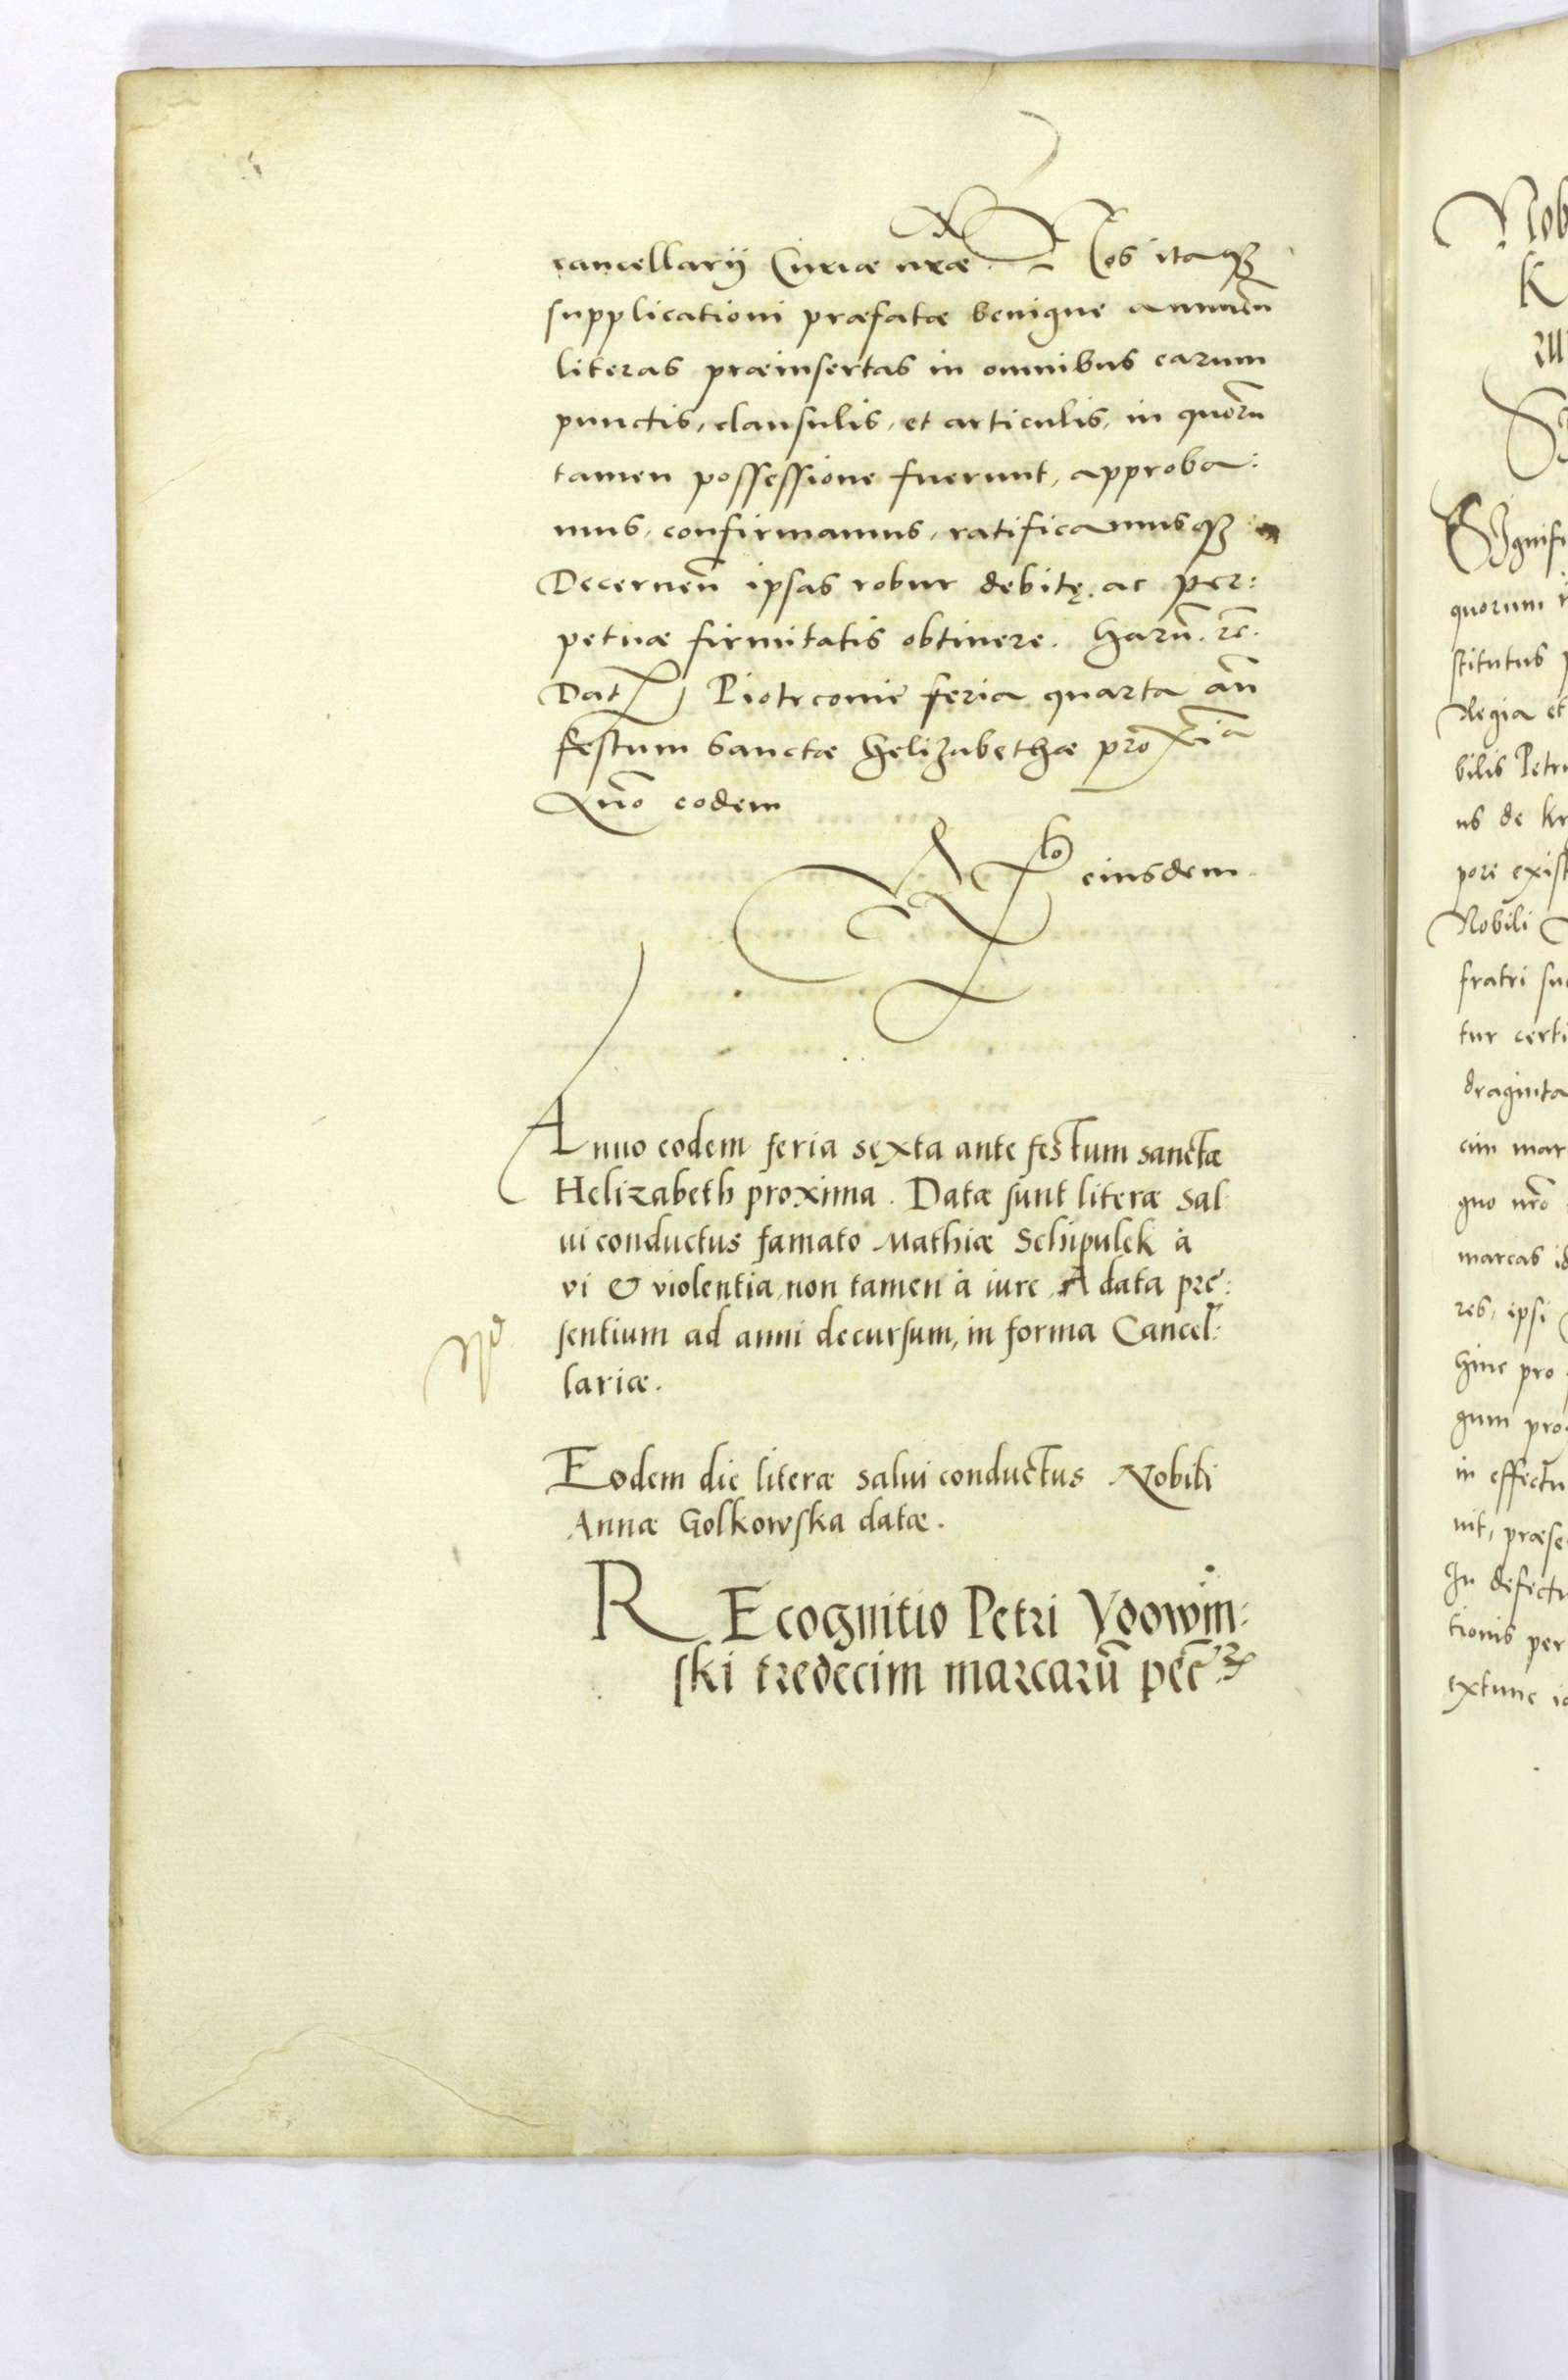 cancellarij Curiæ nr̃æ. Nos itaqꝫ
supplicationi præfatæ benigne annuen̄
literas præinsertas in omnibus earum
punctis, clausulis, et articulis, in quorū
tamen possessione fuerunt, approba:
mus, confirmamus, ratificamusqꝫ
Decernen̄ ipsas robur debitę. ac per:
petuæ firmitatis obtinere. Harū. rc̄.
Dat Piotrconie feria quarta an̄
festum Sanctæ Helizabethæ proxīa
Anō eodem
eiusdem.
Anno eodem feria sexta ante festum sanctæ
Helizabeth proxima. Datæ sunt literæ sal
ui conductus famato Mathiæ Schipulek à
vi & violentia, non tamen à iure, A data præ:
sentium ad anni decursum, in forma Cancel:
lariæ.
Eodem die literæ salui conductus Nobili
Annæ Golkowska datæ.
REcognitio Petri Ydowin:
ski tredecim marcarū pec̄
Nob
K
Signifi
quorum
stitutus
Regia et
bilis Petru
us de kr
pore exist
Nobili
fratri su
tur certi
draginta
cim mar
quo nr̄o
marcas id
res, ipsi
hinc pro
gum pro
in effectu
nit, præse
In defectu
tionis per
extunc